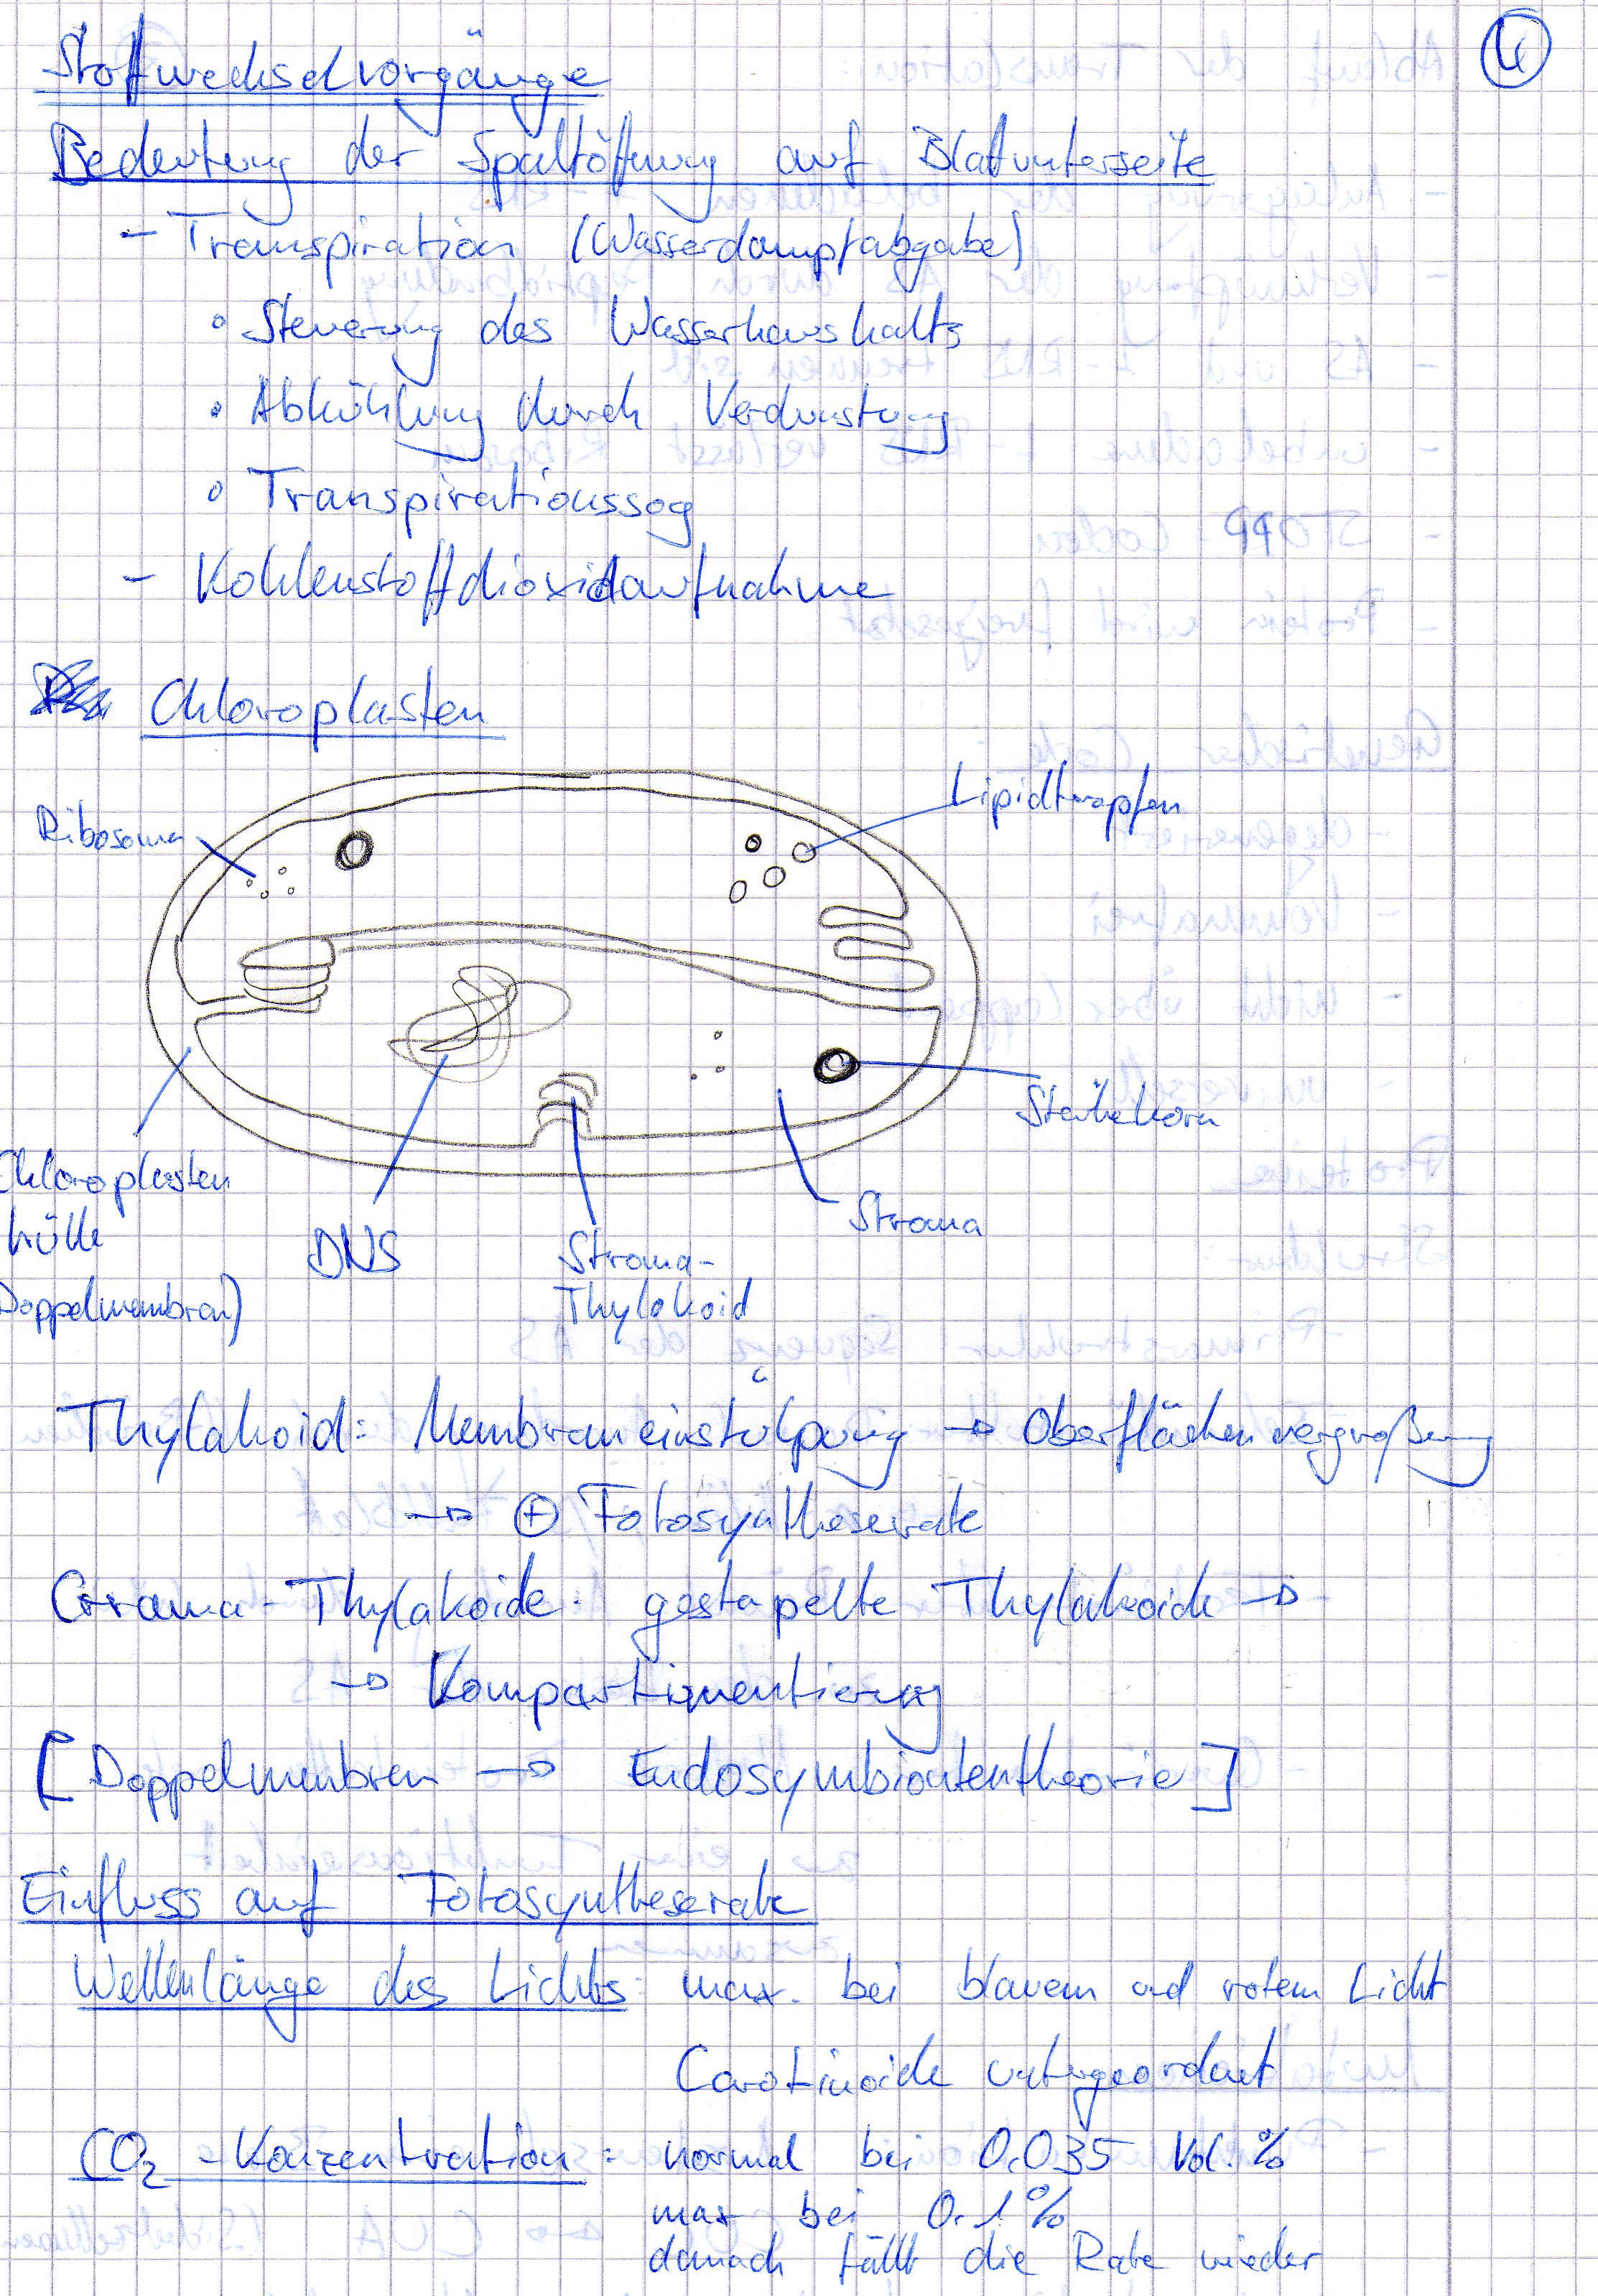 4
Stoffwechselvorgänge
Bedeutung der Spaltöffnung auf Blattunterseite
- Transpiration (Wasserdampfabgabe)
• Steuerung des Wasserhaushalts
• Abkühlung durch Verdunstung
• Transpirationssog
- Kohlenstoffdioxidaufnahme
Chloroplasten
Lipidtropfen
Ribosoma
Stärkekorn
Chloroplasten
hülle
Doppelmembran)
DNS
Stroma-
Thylakoid
Stroma
Thylakoid: Membraneinstülpung → Oberflächenvergroßerung
→ ⊕ Fotosyntheserate
Grana-Thylakoide: gestapelte Thylakoide →
→ Kompartimentierung
[Doppelmembran → Endosymbiontentheorie]
Einfluss auf Fotosyntheserate
Wellenlänge des Lichts: max. bei blauem und rotem Licht
Carotinoide untergeordnet
CO₂-Konzentration: normal bei 0,035 Vol.%
max bei 0,1%
danach fällt die Rate wieder